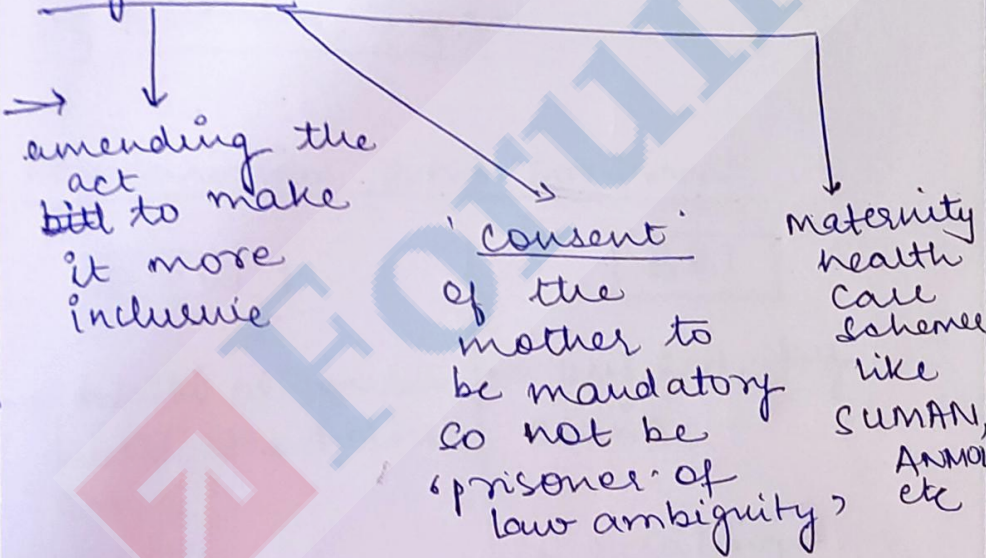 amending the
act
to make
it more
inclusive
'consent'
of the
mother to
be mandatory
so not be
'prisoner of
law ambiguity'
Maternity
health
care
schemes
like
SUMAN,
ANMOL
etc
Forum